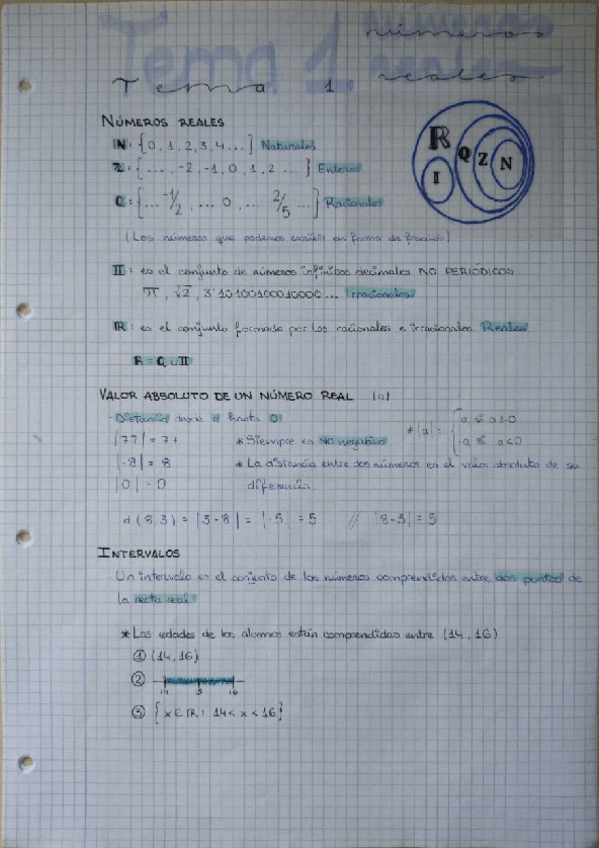 Tema 1 números
reales
Tema 1
NÚMEROS REALES
N: { 0, 1, 2, 3, 4 ... } Naturales
Z: { ..., -2, -1, 0, 1, 2 ... } Enteros
Q: { ... -1/2, ... 0, ... 2/5 ... } Racionales
(Los números que podemos escribir en forma de fracción)
R
Q Z N
I
II: es el conjunto de números infinitos decimales NO PERIÓDICOS.
π, √2, 3'1010010001000... Irracionales
R: es el conjunto formado por los racionales e irracionales. Reales
R = Q ∪ II
VALOR ABSOLUTO DE UN NÚMERO REAL |a|
- Distancia desde a hasta 0
* |a| = { a si a≥0
-a si a<0
|77| = 77 * Siempre es NO negativo
|-8| = 8 * La distancia entre dos números es el valor absoluto de su
|0| = 0 diferencia.
d (8,3) = |3-8| = |-5| = 5 // |8-3| = 5
INTERVALOS
- Un intervalo es el conjunto de los números comprendidos entre dos puntos de
la recta real
* Las edades de los alumnos están comprendidas entre (14,16)
① (14,16)
②
14 16
③ { x ∈ R : 14 < x < 16 }